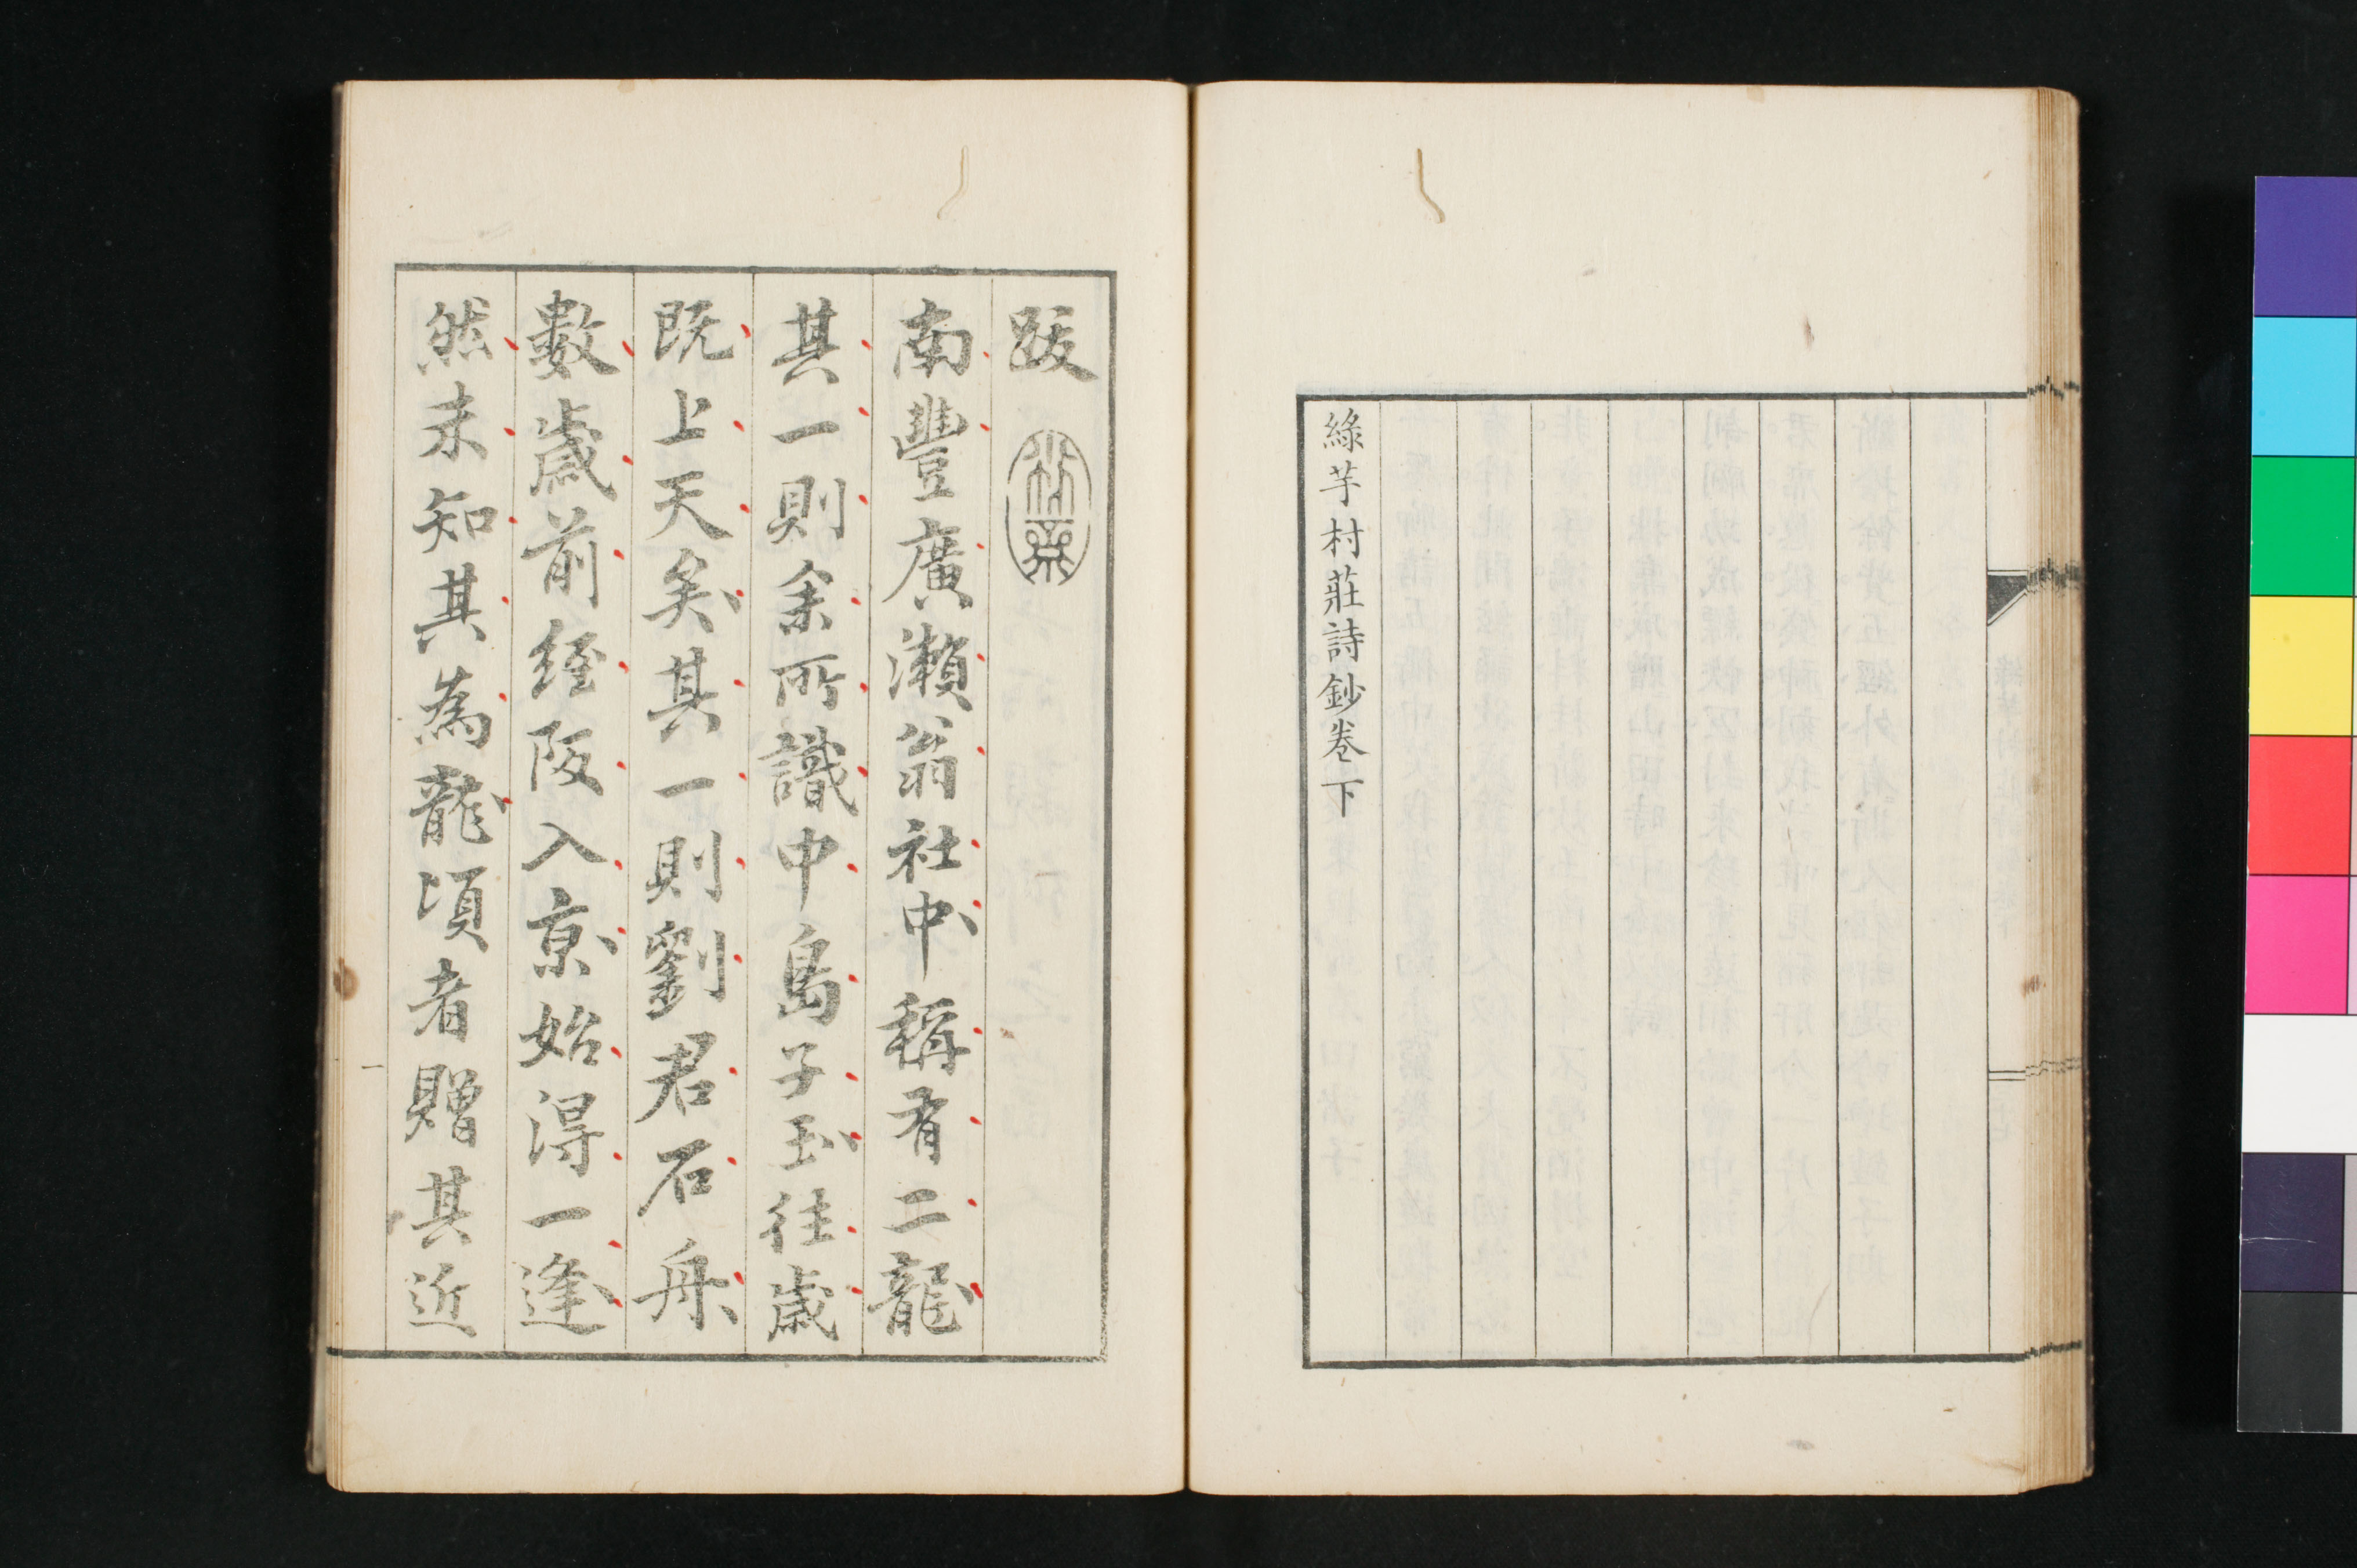 綠芋村莊詩鈔卷下
跋
南豐廣瀨翁社中稱有二龍
其一則余所識中島子玉往歲
既上天矣其一則劉君石舟
數歲前經阪入京始得一逢
然未知其為龍頃者贈其近
一